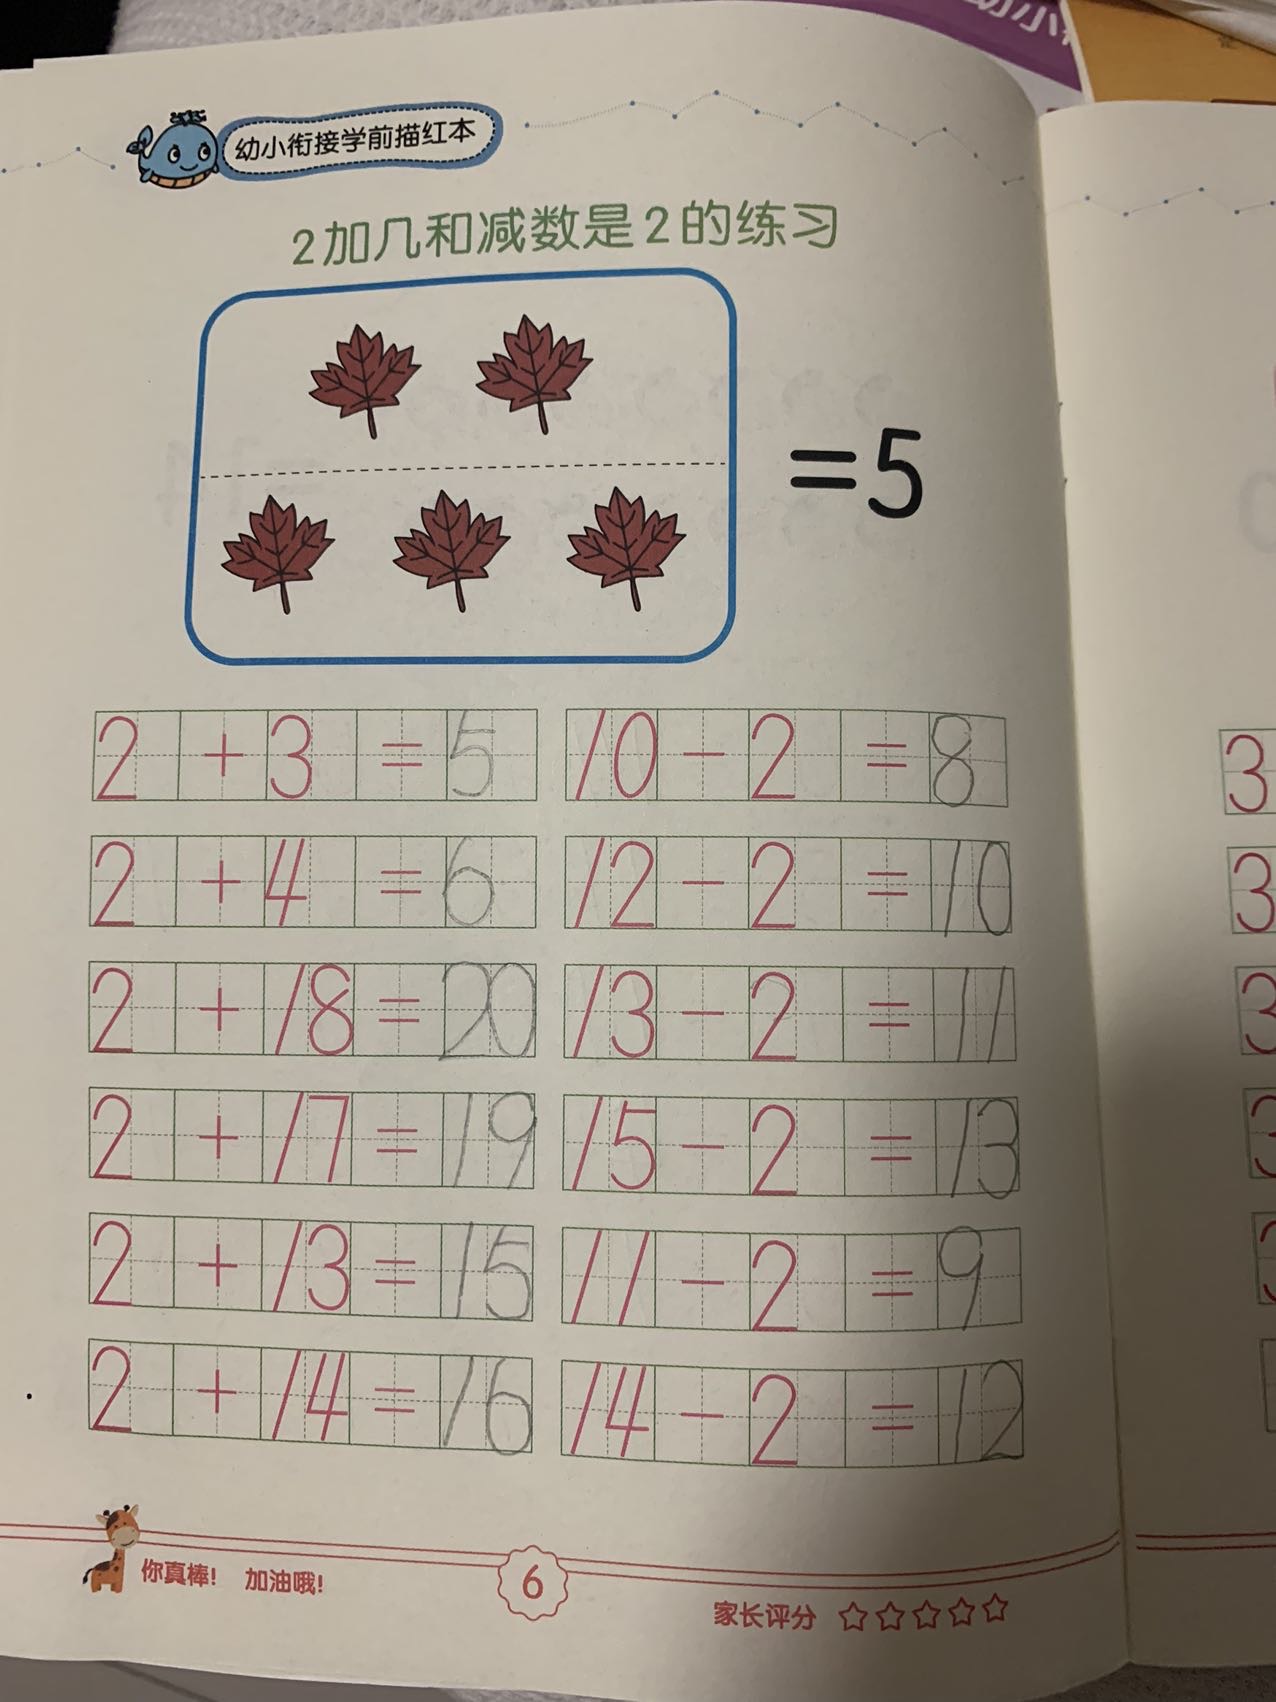 幼小衔接学前描红本
2加几和减数是2的练习
=5
2+3=5 10-2=8
2+4=6 12-2=10
2+18=20 13-2=11
2+17=19 15-2=13
2+13=15 11-2=9
2+14=16 14-2=12
你真棒! 加油哦!
6
家长评分 ☆☆☆☆☆
3
3
3
3